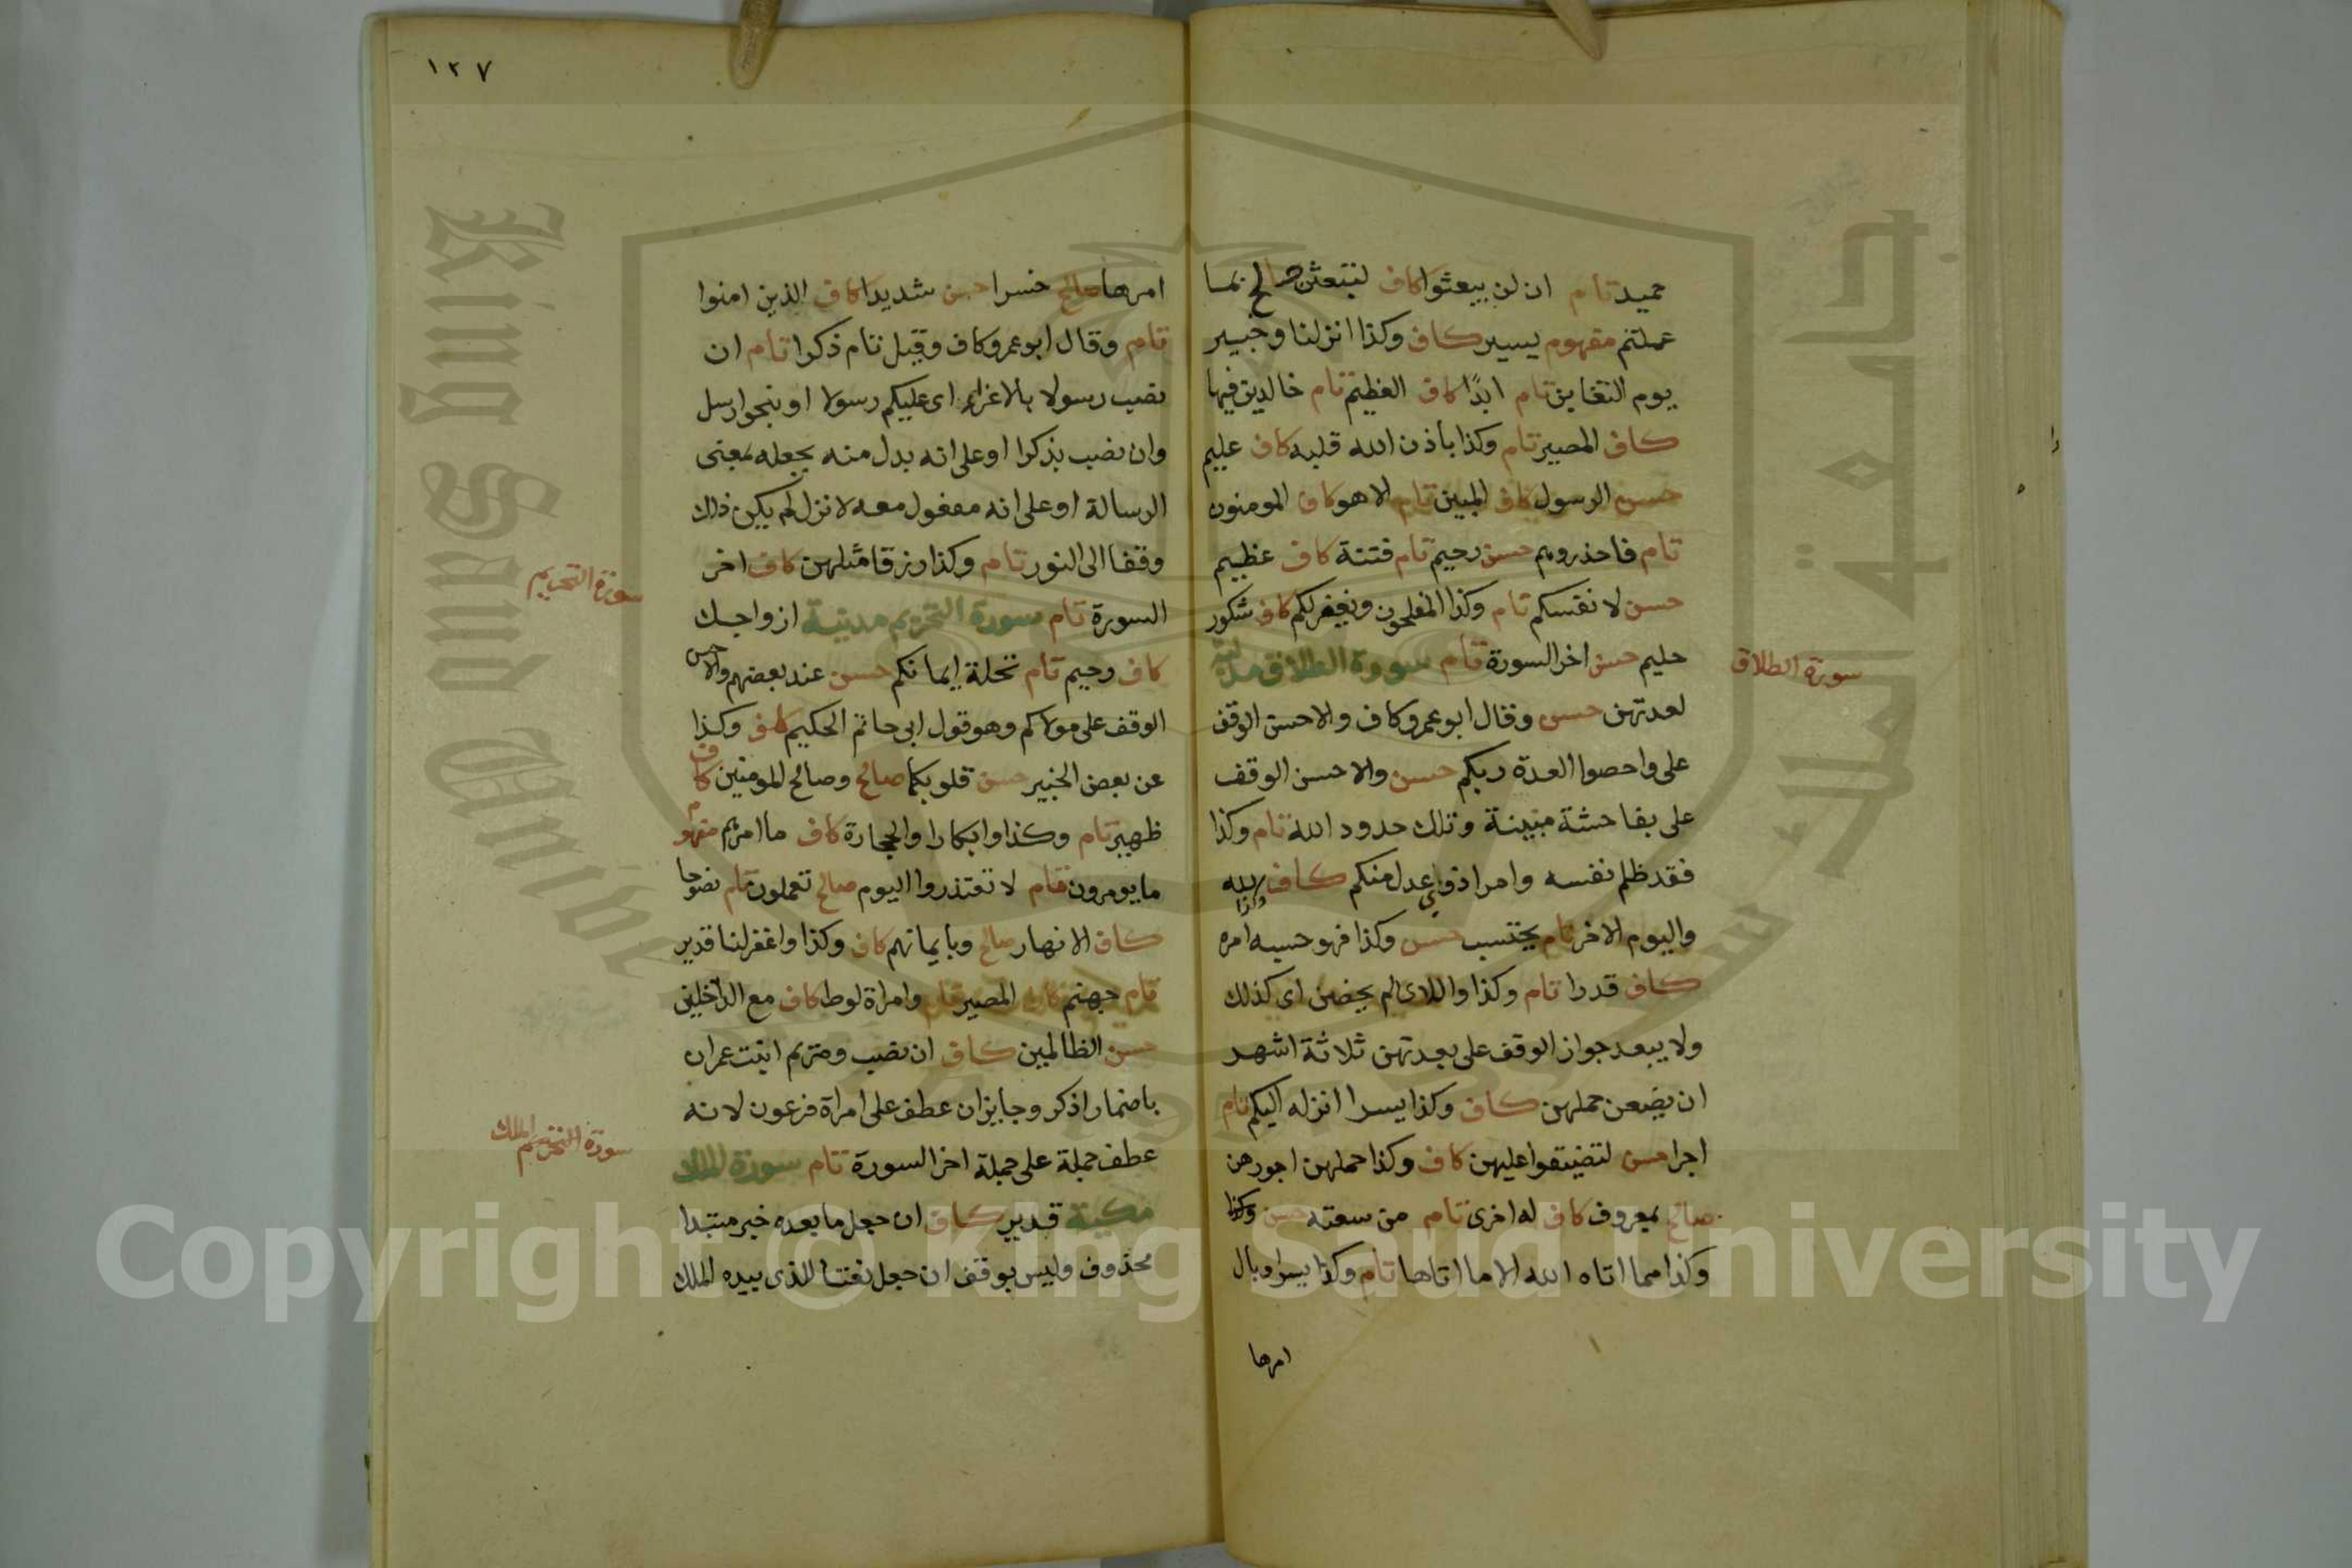 حميد تام ان لن يبعثوا كاف لتبعثن صالح بما
عملتم مفهوم يسير كاف وكذا انزلنا وخبير
يوم التغابن تام ابدًا كاف العظيم تام خالدين فيها
كاف المصير تام وكذا باذن الله قلبه كاف عليم
حسن الرسول كاف المبين تام الا هو كاف المومنون
تام فاحذروهم حسن رحيم تام فتنة كاف عظيم
حسن لانفسكم تام وكذا المفلحون ويغفر لكم كاف شكور
حليم حسن اخر السورة تام سورة الطلاق مدنية
سورة الطلاق
لعدتهن حسن وقال ابو عمرو كاف والاحسن الوقف
على واحصوا العدة ربكم حسن والاحسن الوقف
على بفاحشة مبينة وتلك حدود الله تام وكذا
فقد ظلم نفسه وامرا ذوي عدل منكم كاف لله
واليوم الاخر تام يحتسب حسن وكذا فهو حسبه امره
كاف قدرا تام وكذا واللاى لم يحضن اى كذلك
ولا يبعد جواز الوقف على بعدتهن ثلاثة اشهر
ان يضعن حملهن كاف وكذا يسرا انزله اليكم تام
اجرا حسن لتضيقوا عليهن كاف وكذا حملهن اجورهن
صالح بمعروف كاف له اخرى تام من سعته حسن وكذا
وكذا مما اتاه الله الا ما اتاها تام وكذا يسرا وبال
امرها
١٢٧
امرها صالح خسرا حسن شديدا كاف الذين امنوا
تام وقال ابو عمرو كاف وقيل تام ذكرا تام ان
نصب رسولا بالاغراء اى عليكم رسولا او بنحو ارسل
وان نصب بذكرا او على انه بدل منه بجعله بمعنى
الرسالة او على انه مفعول معه لانزل لم يكن ذلك
وقفا الى النور تام وكذا رزقا مثلهن كاف اخر
السورة تام سورة التحريم مدنية ازواجك
سورة التحريم
كاف رحيم تام تحلة ايمانكم حسن عند بعضهم والاحسن
الوقف على مولاكم وهو قول ابى حاتم الحكيم كاف وكذا
عن بعض الخبير حسن قلوبكما صالح وصالح المومنين كاف
ظهير تام وكذا وابكارا والحجارة كاف ما امرهم مفهوم
ما يومرون تام لا تعتذروا اليوم صالح تعملون تام نصوحا
كاف الانهار صالح وبايمانهم كاف وكذا واغفر لنا قدير
تام جهنم كاف المصير تام وامراة لوط كاف مع الداخلين
حسن الظالمين كاف ان نصب ومريم ابنت عمران
باضمار اذكر وجايز ان عطف على امراة فرعون لانه
عطف جملة على جملة اخر السورة تام سورة الملك
سورة التحريم الملك
مكية قدير كاف ان جعل ما بعده خبر مبتدا
محذوف وليس بوقف ان جعل نعتا للذى بيده الملك
Copyright © King Saud University
King Saud University
جامعة الملك سعود